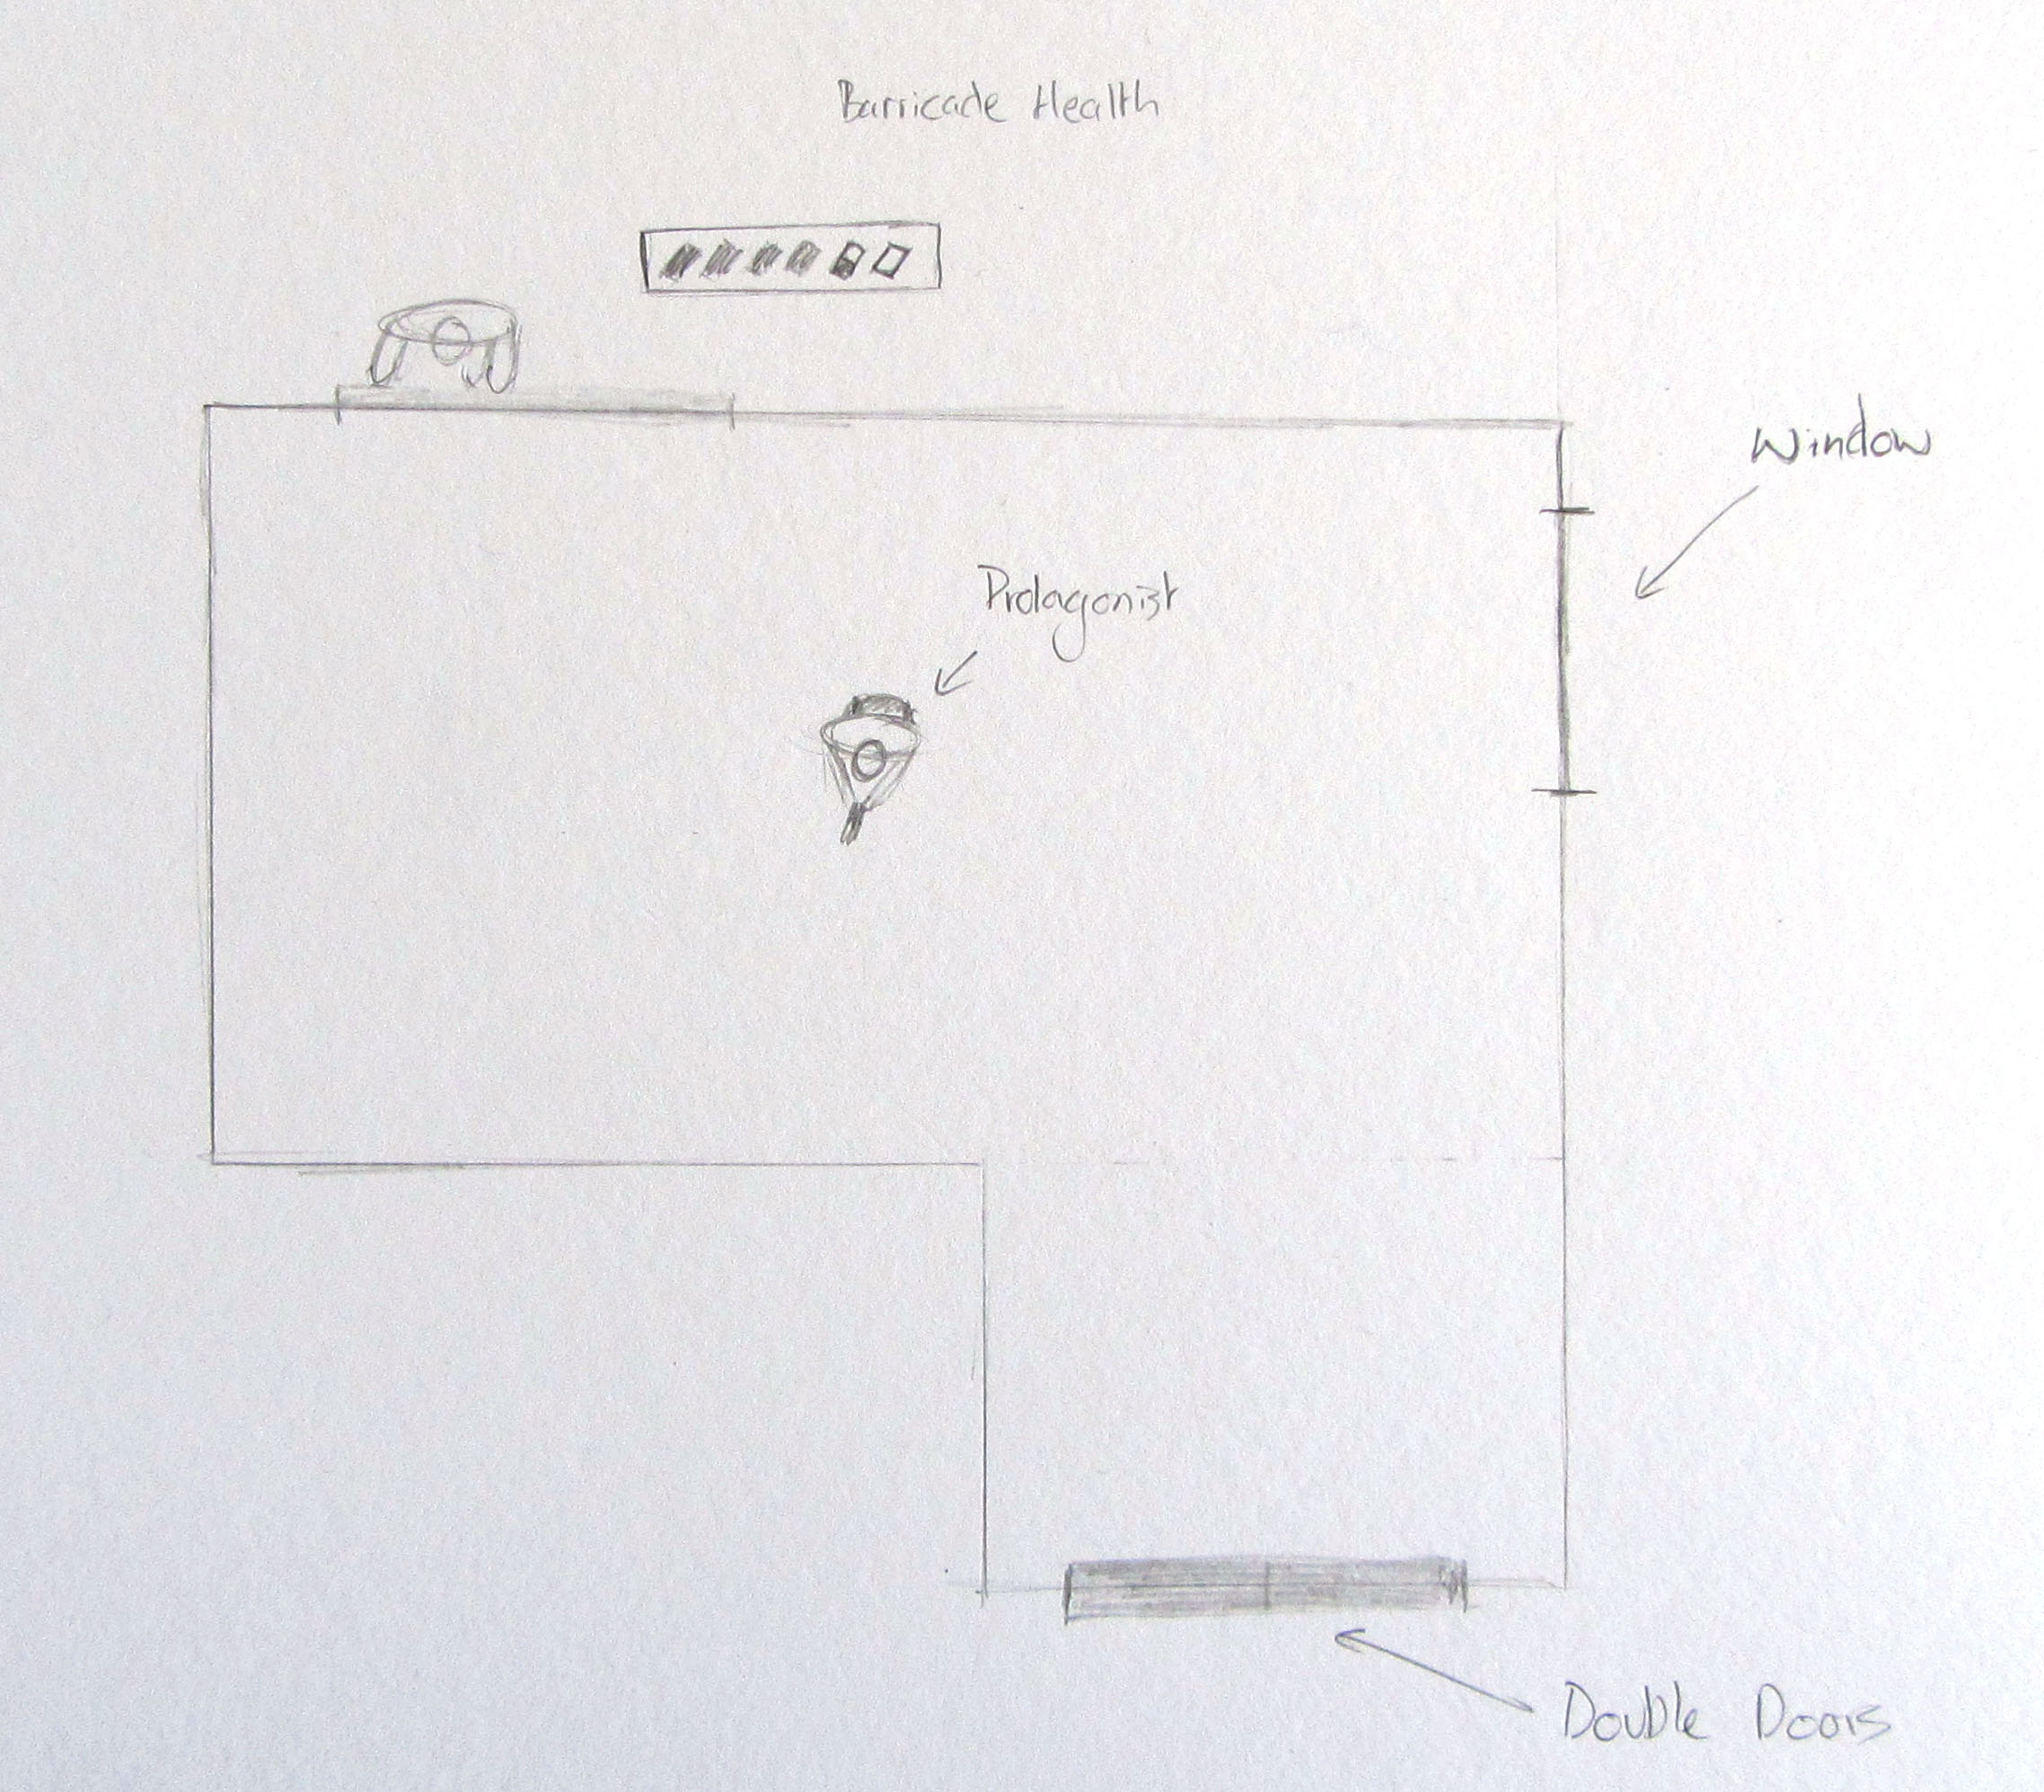 Barricade Health
Window
Protagonist
Double Doors